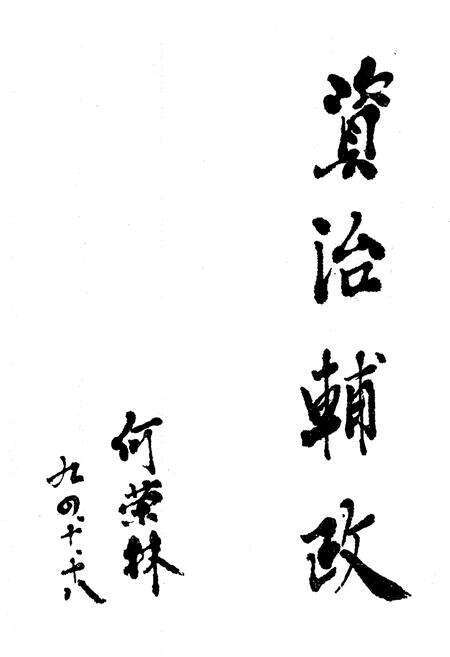 資治輔政
何荣林
九四、十、十八